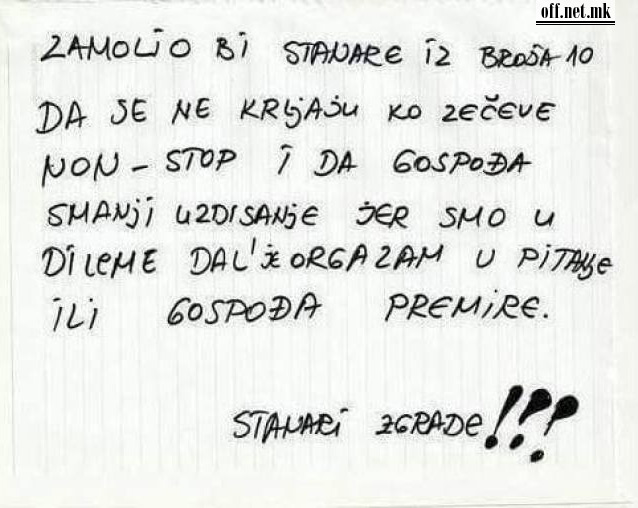 off.net.mk
ZAMOLIO BI STANARE IZ BROJA 10
DA SE NE KRLJAJU KO ZEČEVE
NON-STOP I DA GOSPOĐA
SMANJI UZDISANJE JER SMO U
DILEME DAL' JE ORGAZAM U PITANJE
ILI GOSPOĐA PREMIRE.
STANARI ZGRADE!??